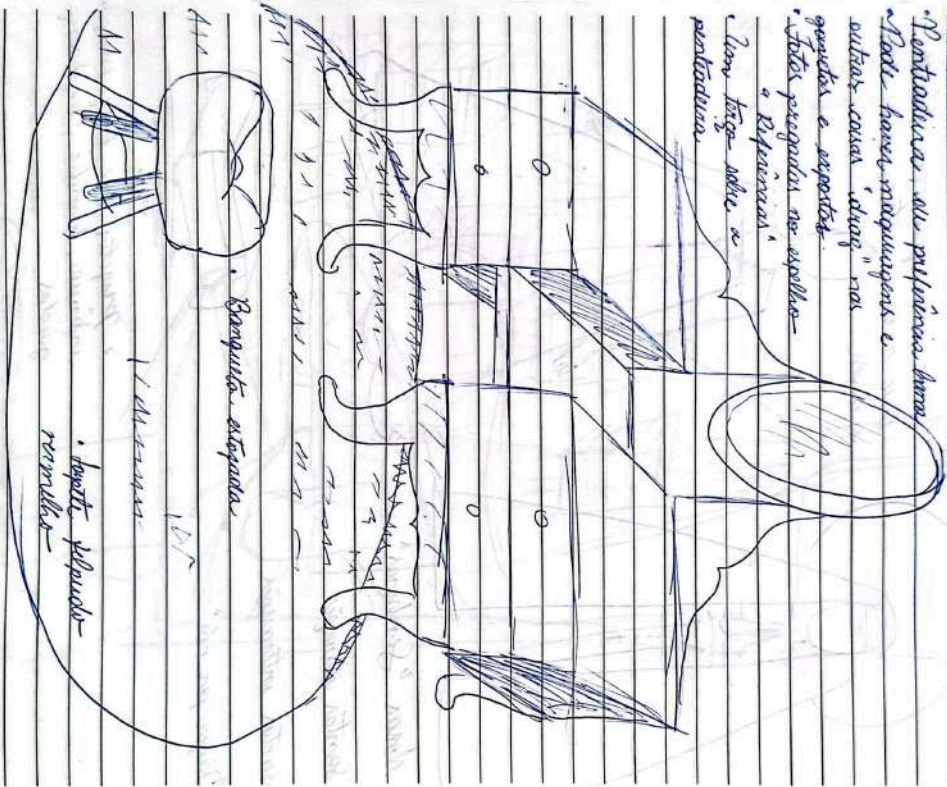 • Penteadeira de preferência
• Pode haver maquiagens e
outras coisas "drag" nas
gavetas e expostas
• Fotos pregadas no espelho
"Referências"
• Um terço sobre a
penteadeira
• Banqueta estofada
• Tapete felpudo
vermelho